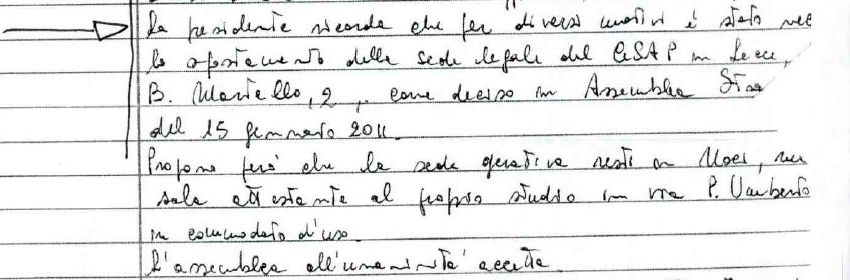 La presidente ricorda che per diversi motivi è stato nec
lo spostamento della sede legale del CeSAP in Lecce,
B. Martello, 2, come deciso in Assemblea Stra
del 15 gennaio 2011.
Propone però che la sede operativa resti a Noci, nel
sala attestante al proprio studio in via P. Umberto
in commodato d'uso.
L'assemblea all'unanimità accetta.